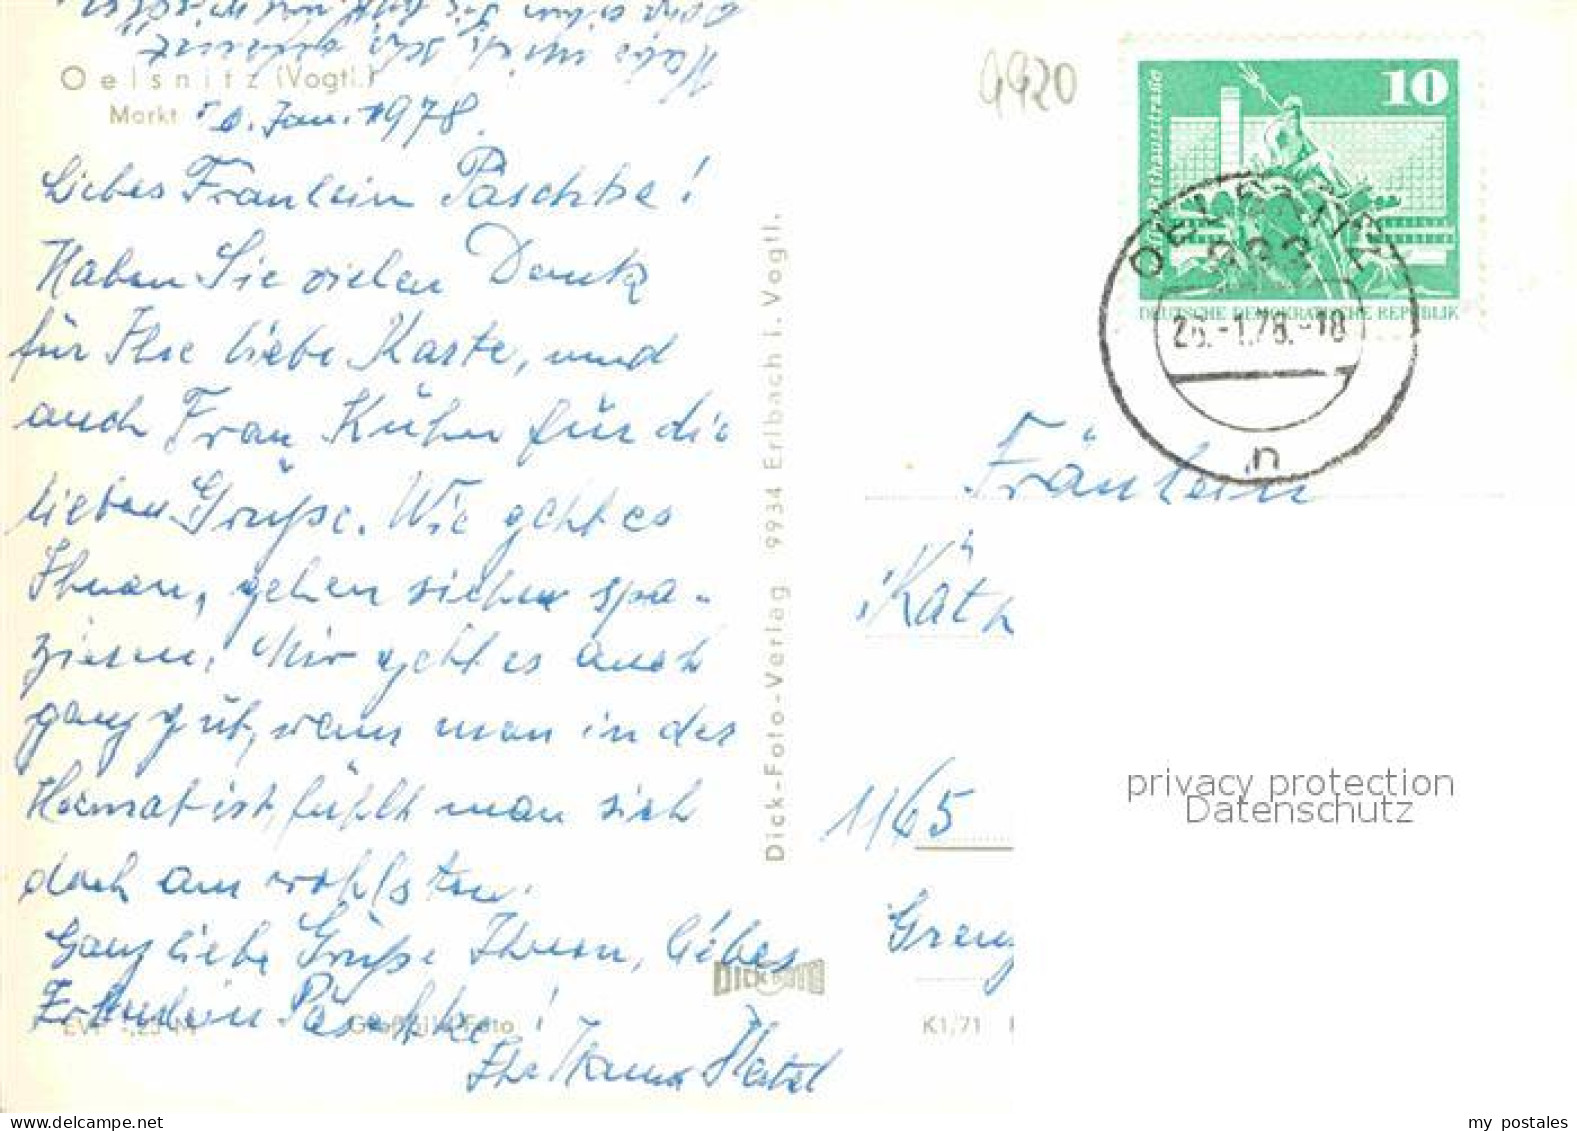 Oelsnitz (Vogtl.)
Markt
Jan. 1978.
Liebes Fräulein Päschke!
Haben Sie vielen Dank
für Ihre liebe Karte, und
auch Frau Kühn für die
lieben Grüße. Wie geht es
Ihnen, gehen sicher spa-
zieren. Mir geht es auch
ganz gut, wenn man in der
Heimat ist, fühlt man sich
doch am wohlsten.
Ganz liebe Grüße Ihnen, liebes
Fräulein Päschke!
Ihre Hertel
Großbild-Foto
DICK FOTO
Dick-Foto-Verlag 9934 Erlbach i. Vogtl.
K1/71
9920
10
Rathausstraße
DEUTSCHE DEMOKRATISCHE REPUBLIK
OELSNITZ
26.-1.78.-18
n
Fräulein
Käth
1165
Grenz
privacy protection
Datenschutz
my postales